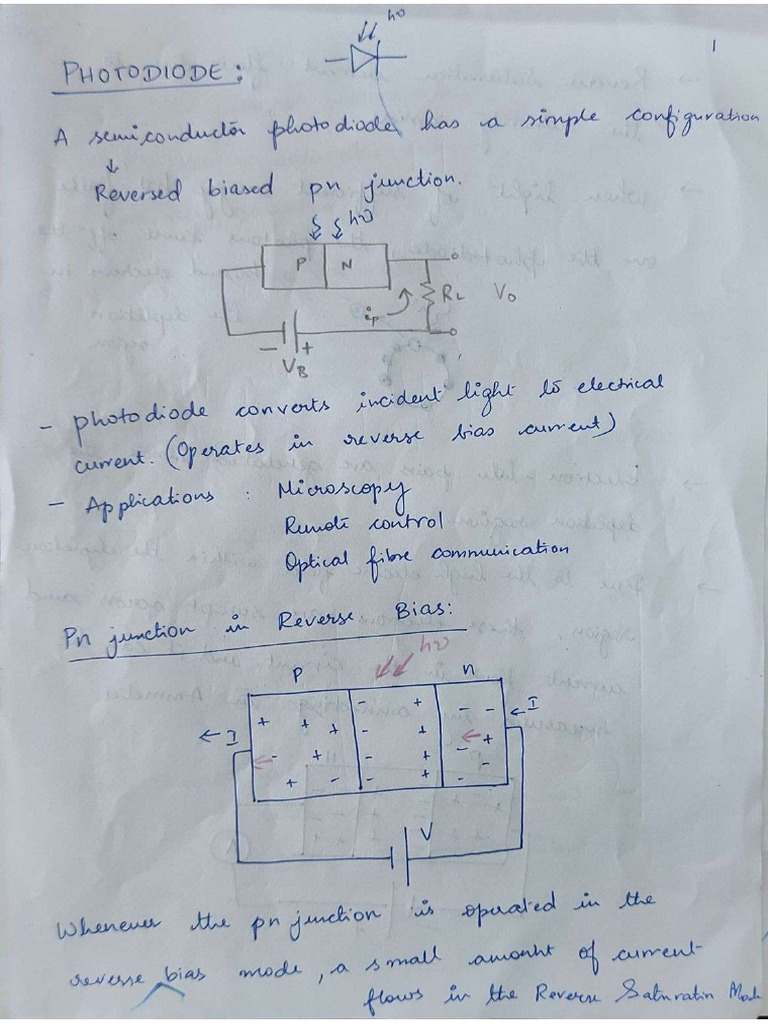 hυ
1
PHOTODIODE:
A semiconductor photodiode has a simple configuration
↓
Reversed biased pn junction.
hυ
P N
RL V0
ip
− +
VB
- photodiode converts incident light to electrical
current. (Operates in reverse bias current)
- Applications : Microscopy
Remote control
Optical fibre communication
Pn junction in Reverse Bias:
hυ
P n
← I ← I
V
Whenever the pn junction is operated in the
reverse bias mode, a small amount of current
flows in the Reverse Saturatin Mode